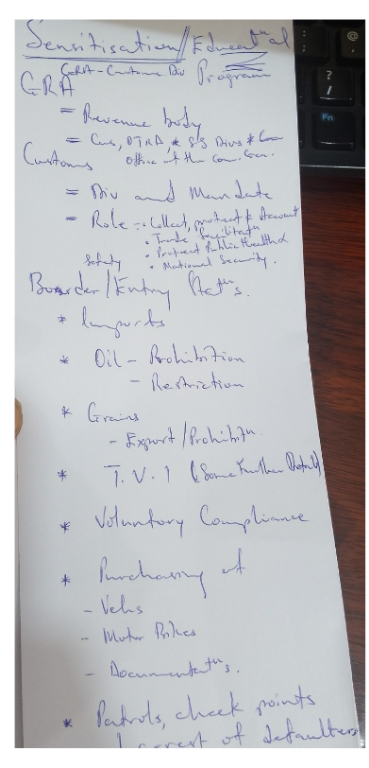 Sensitisation/Educatnal
GRA-Customs Div Program
GRA
= Revenue body
= Cus, DTRD, * SS Divs * Com
Office of the Com. Gen.
Customs
= Div and Mandate
= Role -: Collect, protect & Account
• Trade facilitatn
• Protect Public Health &
Safety • National Security.
Boarder/Entry
* Imports
* Oil - Prohibition
- Restriction
* Grains
- Export/Prohibitn
* T.V.1 (Some Further Details)
* Voluntary Compliance
* Purchasing of
- Vehs
- Motor Bikes
- Documentatns.
* Patrols, check points
arrest of defaulters
@
?
/
Fn